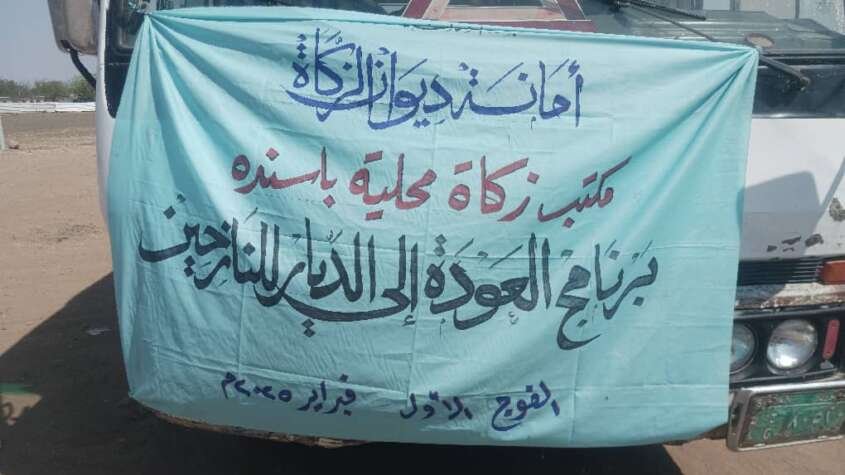 أمانة ديوان الزكاة
مكتب زكاة محلية باسنده
برنامج العودة إلى الديار للنازحين
الفوج الأول فبراير ٢٠٢٥م